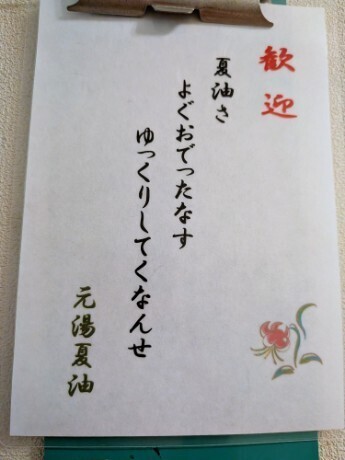 歓迎
夏油さ
よぐおでったなす
ゆっくりしてくなんせ
元湯夏油